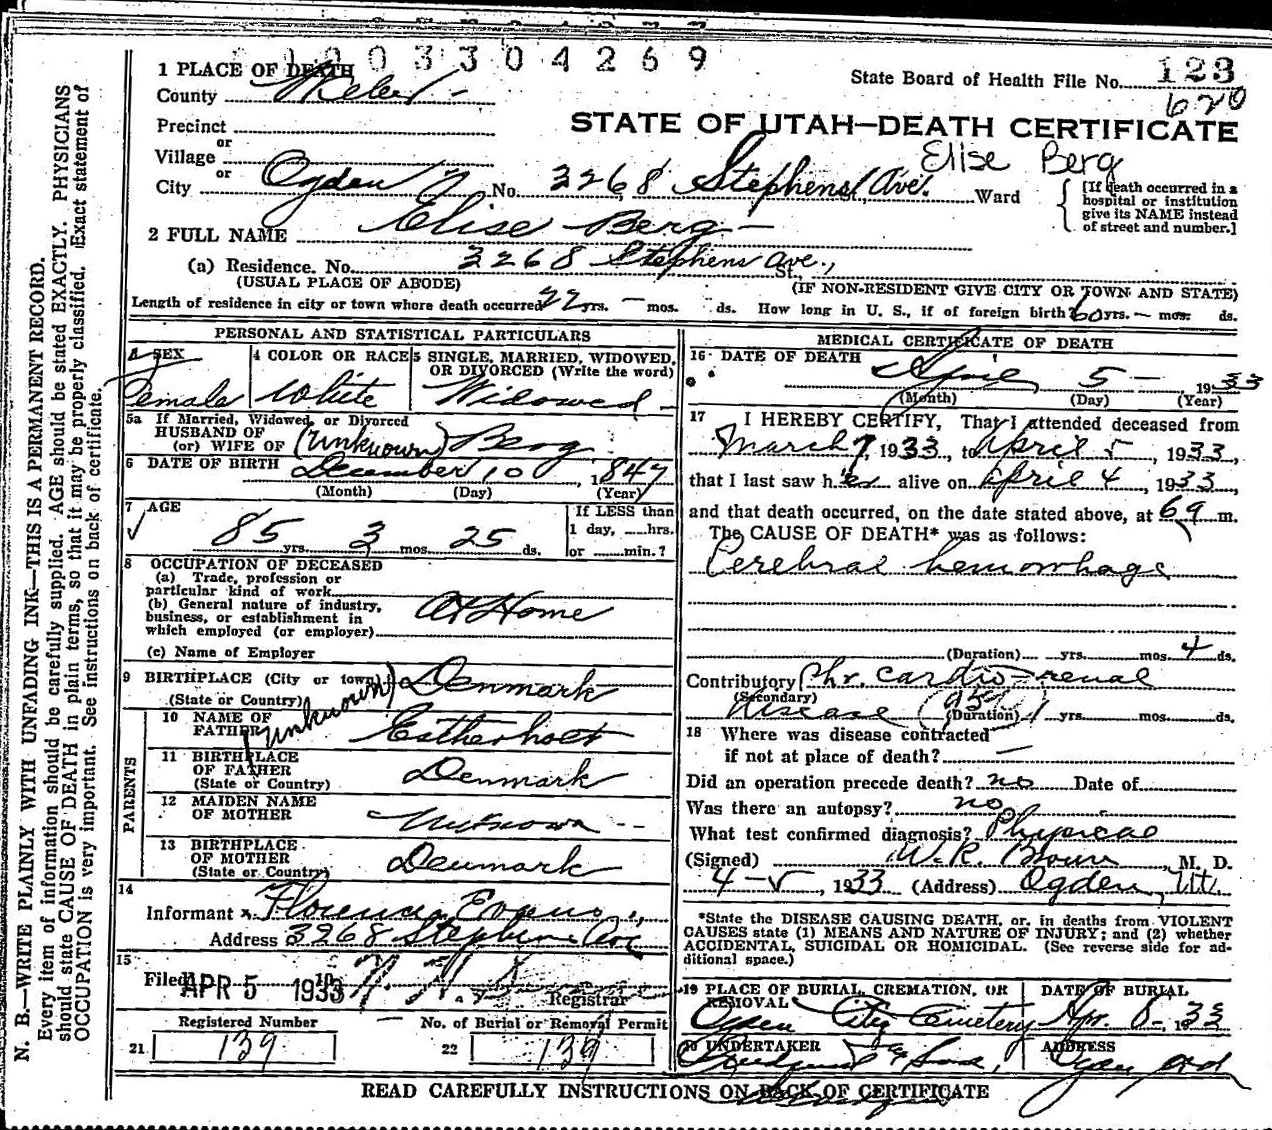 1 2 0 0 3 3 0 4 2 6 9
1 PLACE OF DEATH
State Board of Health File No. 123
County Weber
620
Precinct
STATE OF UTAH—DEATH CERTIFICATE
or
Village
Elise Berg
or
City Ogden No. 3268 Stephens Ave. Ward
[If death occurred in a hospital or institution give its NAME instead of street and number.]
2 FULL NAME Elise Berg
(a) Residence. No. 3268 Stephens Ave., St.,
(USUAL PLACE OF ABODE) (IF NON-RESIDENT GIVE CITY OR TOWN AND STATE)
Length of residence in city or town where death occurred 22 yrs. — mos. ds. How long in U. S., if of foreign birth? 60 yrs. — mos. ds.
PERSONAL AND STATISTICAL PARTICULARS
SEX
4 COLOR OR RACE
5 SINGLE, MARRIED, WIDOWED, OR DIVORCED (Write the word)
Female White Widowed
5a If Married, Widowed, or Divorced
HUSBAND OF
(or) WIFE OF (unknown) Berg
6 DATE OF BIRTH December 10, 1847
(Month) (Day) (Year)
7 AGE
85 yrs. 3 mos. 25 ds.
If LESS than
1 day, hrs.
or min.?
8 OCCUPATION OF DECEASED
(a) Trade, profession or
particular kind of work
(b) General nature of industry,
business, or establishment in
which employed (or employer)
At Home
(c) Name of Employer
9 BIRTHPLACE (City or town)
(State or Country) (unknown) Denmark
PARENTS
10 NAME OF
FATHER (unknown) Estherholt
11 BIRTHPLACE
OF FATHER
(State or Country) Denmark
12 MAIDEN NAME
OF MOTHER Unknown
13 BIRTHPLACE
OF MOTHER
(State or Country) Denmark
14
Informant x Florence
Address 3268 Stephens Ave
15
Filed APR 5 1933
Registrar
Registered Number
No. of Burial or Removal Permit
21 139
22 139
MEDICAL CERTIFICATE OF DEATH
16 DATE OF DEATH
April 5 — 1933
(Month) (Day) (Year)
17 I HEREBY CERTIFY, That I attended deceased from
March 7, 1933, to April 5, 1933,
that I last saw her alive on April 4, 1933,
and that death occurred, on the date stated above, at 6 a m.
The CAUSE OF DEATH* was as follows:
Cerebral hemorrhage
(Duration) yrs. mos. 4 ds.
Contributory Chr. cardio-renal
(Secondary)
disease (Duration) yrs. mos. ds.
18 Where was disease contracted
if not at place of death? —
Did an operation precede death? no Date of
Was there an autopsy? no
What test confirmed diagnosis? Physical
(Signed) W. R. Brown M. D.
4-5, 1933 (Address) Ogden, Ut.
*State the DISEASE CAUSING DEATH, or, in deaths from VIOLENT
CAUSES state (1) MEANS AND NATURE OF INJURY; and (2) whether
ACCIDENTAL, SUICIDAL OR HOMICIDAL. (See reverse side for ad-
ditional space.)
19 PLACE OF BURIAL, CREMATION, OR
REMOVAL
DATE OF BURIAL
Ogden City Cemetery Apr. 8-, 1933
20 UNDERTAKER
ADDRESS
& Sons, Ogden
READ CAREFULLY INSTRUCTIONS ON BACK OF CERTIFICATE
N. B.—WRITE PLAINLY WITH UNFADING INK—THIS IS A PERMANENT RECORD.
Every item of information should be carefully supplied. AGE should be stated EXACTLY. PHYSICIANS
should state CAUSE OF DEATH in plain terms, so that it may be properly classified. Exact statement of
OCCUPATION is very important. See instructions on back of certificate.